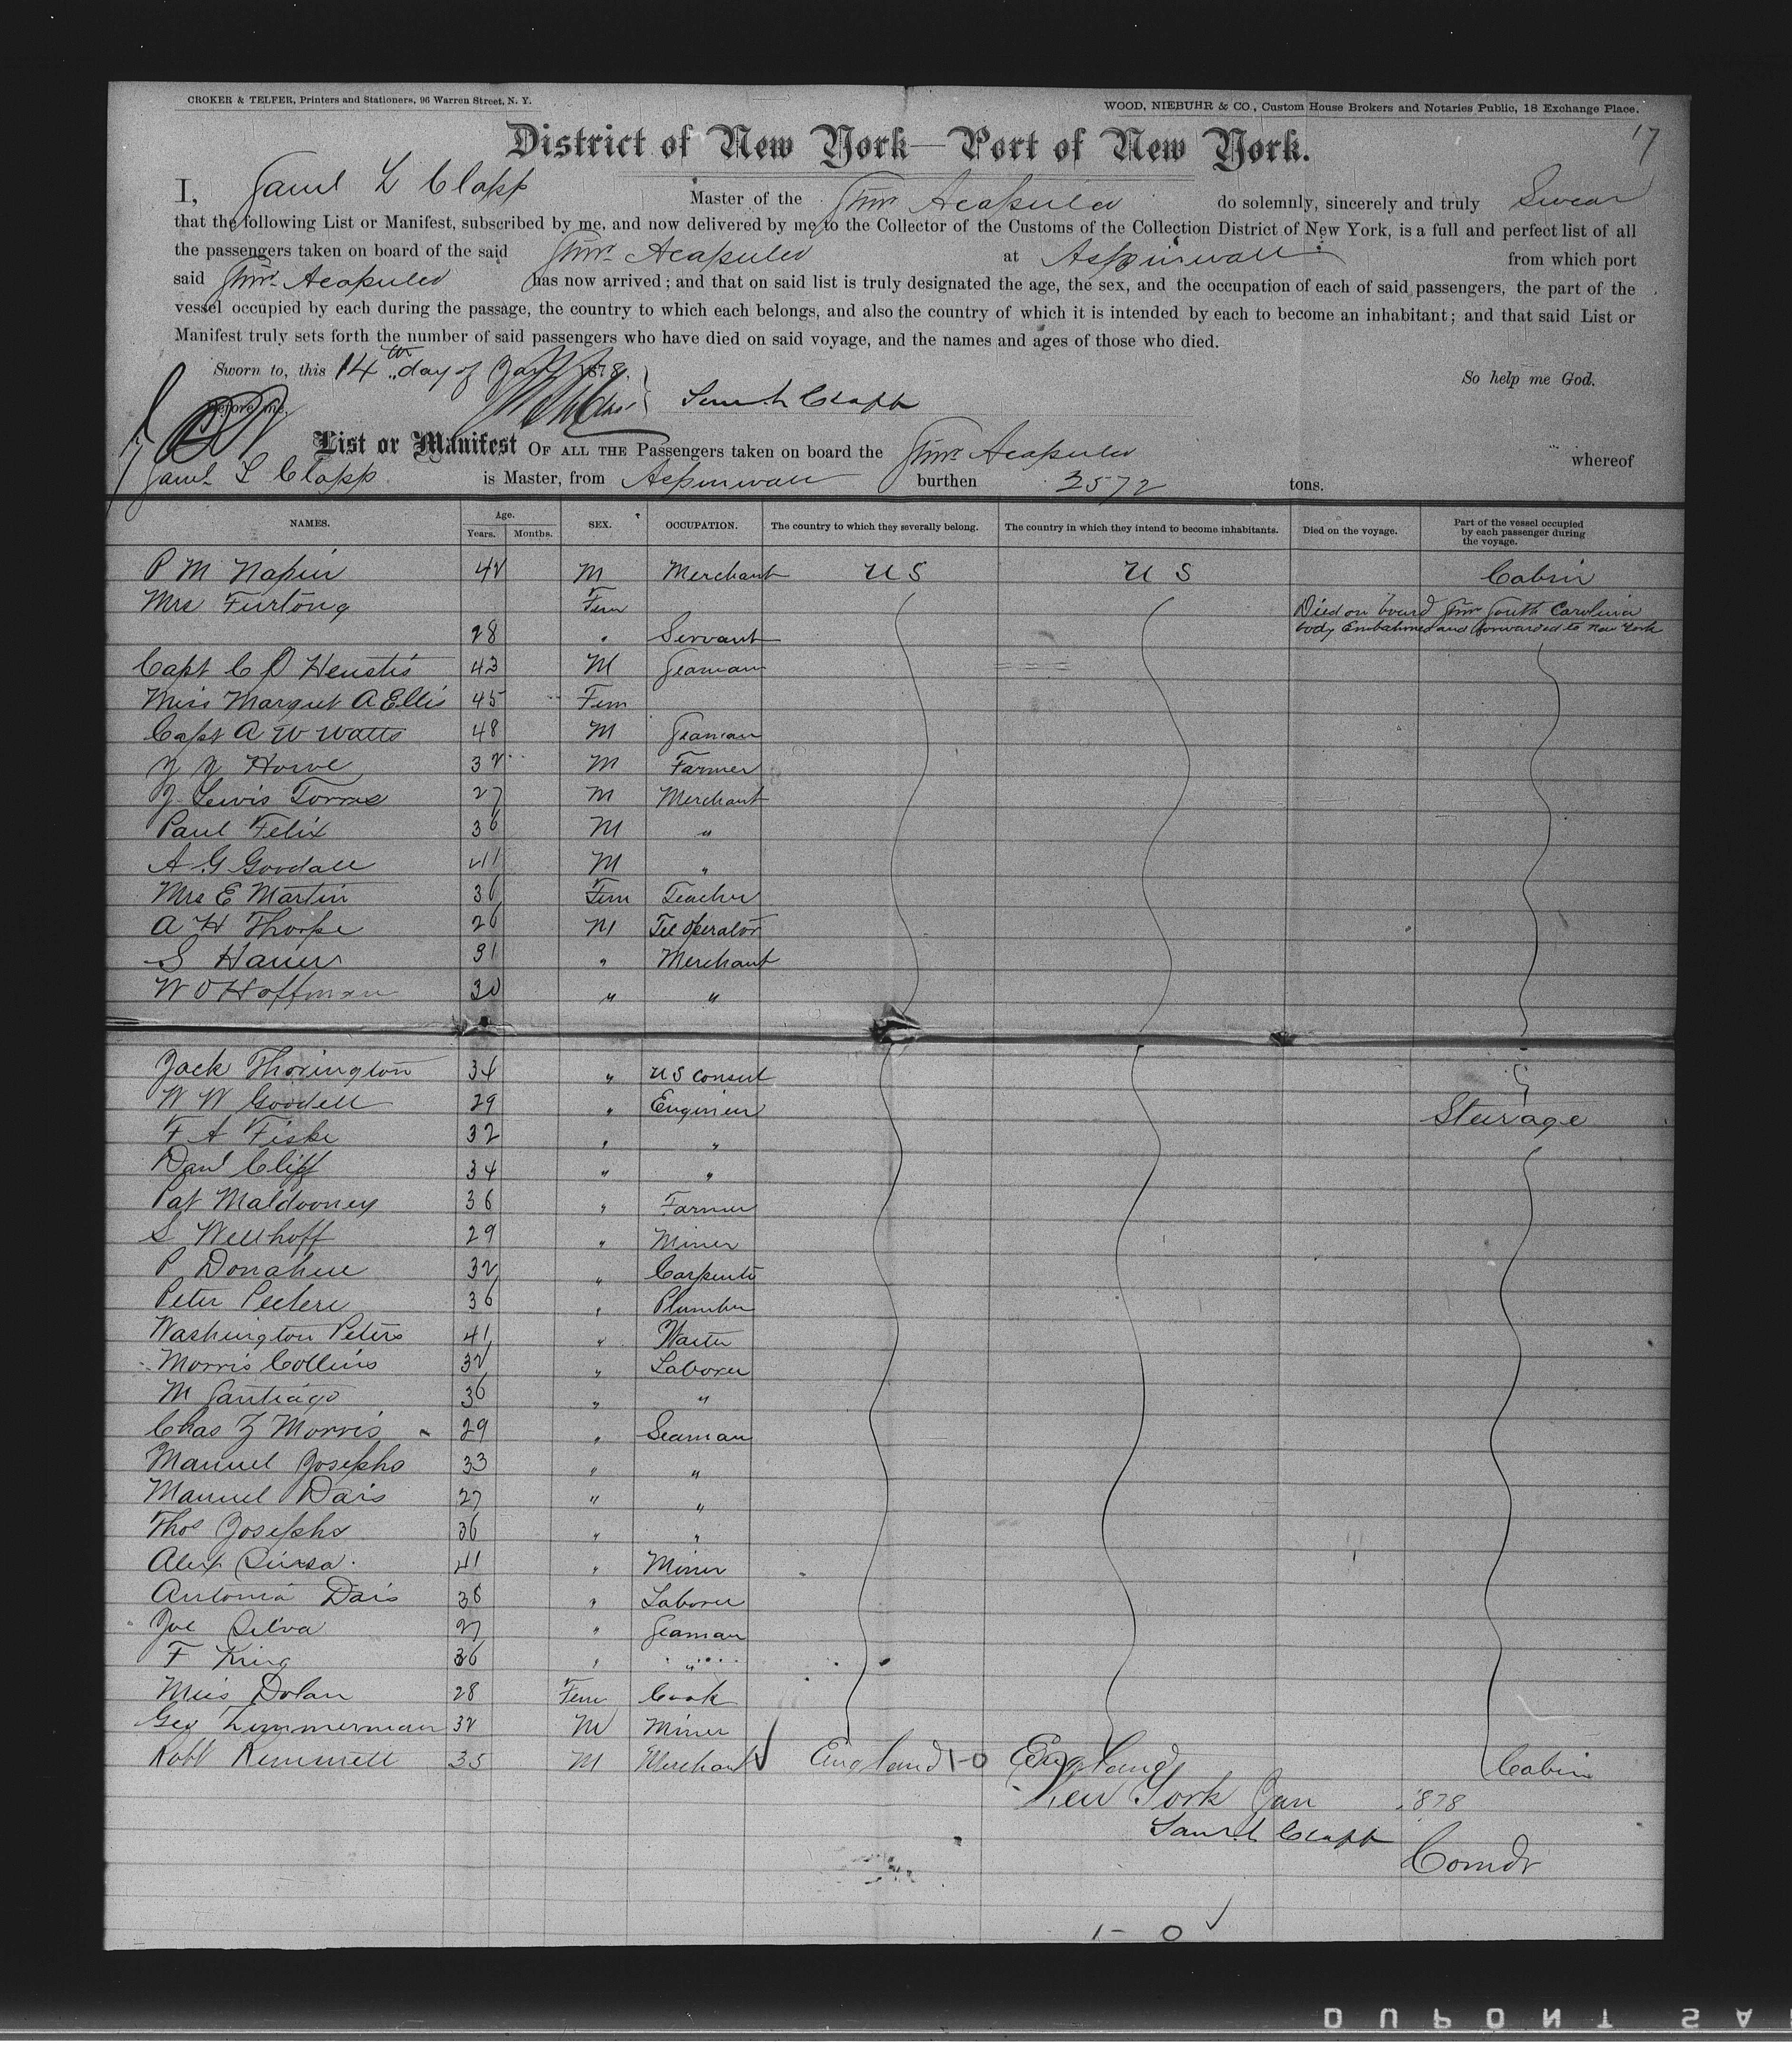 CROKER & TELFER, Printers and Stationers, 96 Warren Street, N. Y.
WOOD, NIEBUHR & CO., Custom House Brokers and Notaries Public, 18 Exchange Place.
17
District of New York—Port of New York.
I, Saml L Clapp Master of the Stmr Acapulco do solemnly, sincerely and truly Swear
that the following List or Manifest, subscribed by me, and now delivered by me to the Collector of the Customs of the Collection District of New York, is a full and perfect list of all
the passengers taken on board of the said Stmr Acapulco at Aspinwall from which port
said Stmr Acapulco has now arrived; and that on said list is truly designated the age, the sex, and the occupation of each of said passengers, the part of the
vessel occupied by each during the passage, the country to which each belongs, and also the country of which it is intended by each to become an inhabitant; and that said List or
Manifest truly sets forth the number of said passengers who have died on said voyage, and the names and ages of those who died.
Sworn to, this 14th day of Jany 1878. So help me God.
Before me, Saml L Clapp
List or Manifest OF ALL THE Passengers taken on board the Stmr Acapulco whereof
Saml L Clapp is Master, from Aspinwall burthen 2572 tons.
NAMES. Age. Years. Months. SEX. OCCUPATION. The country to which they severally belong. The country in which they intend to become inhabitants. Died on the voyage. Part of the vessel occupied by each passenger during the voyage.
P M Napier 42 M Merchant U S U S Cabin
Mrs Furlong Fem Died on board Stmr South Carolina
28 " Servant body Embalmed and forwarded to New York
Capt C D Heustis 43 M Seaman
Miss Margret A Ellis 45 Fem
Capt A W Watts 48 M Seaman
Howe 32 M Farmer
J Lewis Torres 27 M Merchant
Paul Felix 36 M "
A G Goodall 41 M "
Mrs E Martin 36 Fem Teacher
A H Thorpe 26 M Tel Operator
S Hauer 31 " Merchant
W O Hoffman 30 " "
Jack Thorington 34 " US Consul
W W Goodell 29 " Engineer Steerage
F A Fiske 32 " "
Danl Cliff 34 " "
Pat Maldooney 36 " Farmer
S Wellhoff 29 " Miner
P Donahue 32 " Carpenter
Peter 36 " Plumber
Washington Peters 41 " Waiter
Morris Collins 32 " Laborer
M Santiago 36 " "
Chas Z Morris 29 " Seaman
Manuel Josephs 33 " "
Manuel Dais 27 " "
Thos Josephs 36 " "
Alex 41 " Miner
Antonia Dais 38 " Laborer
Joe Silva 27 " Seaman
F King 36 " "
Miss Dolan 28 Fem Cook
Geo Zimmerman 32 M Miner
Robt Kimmell 35 M Merchant England 1-0 England Cabin
New York Jan 1878
Saml L Clapp
Comdr
1-0
DUPONT SA